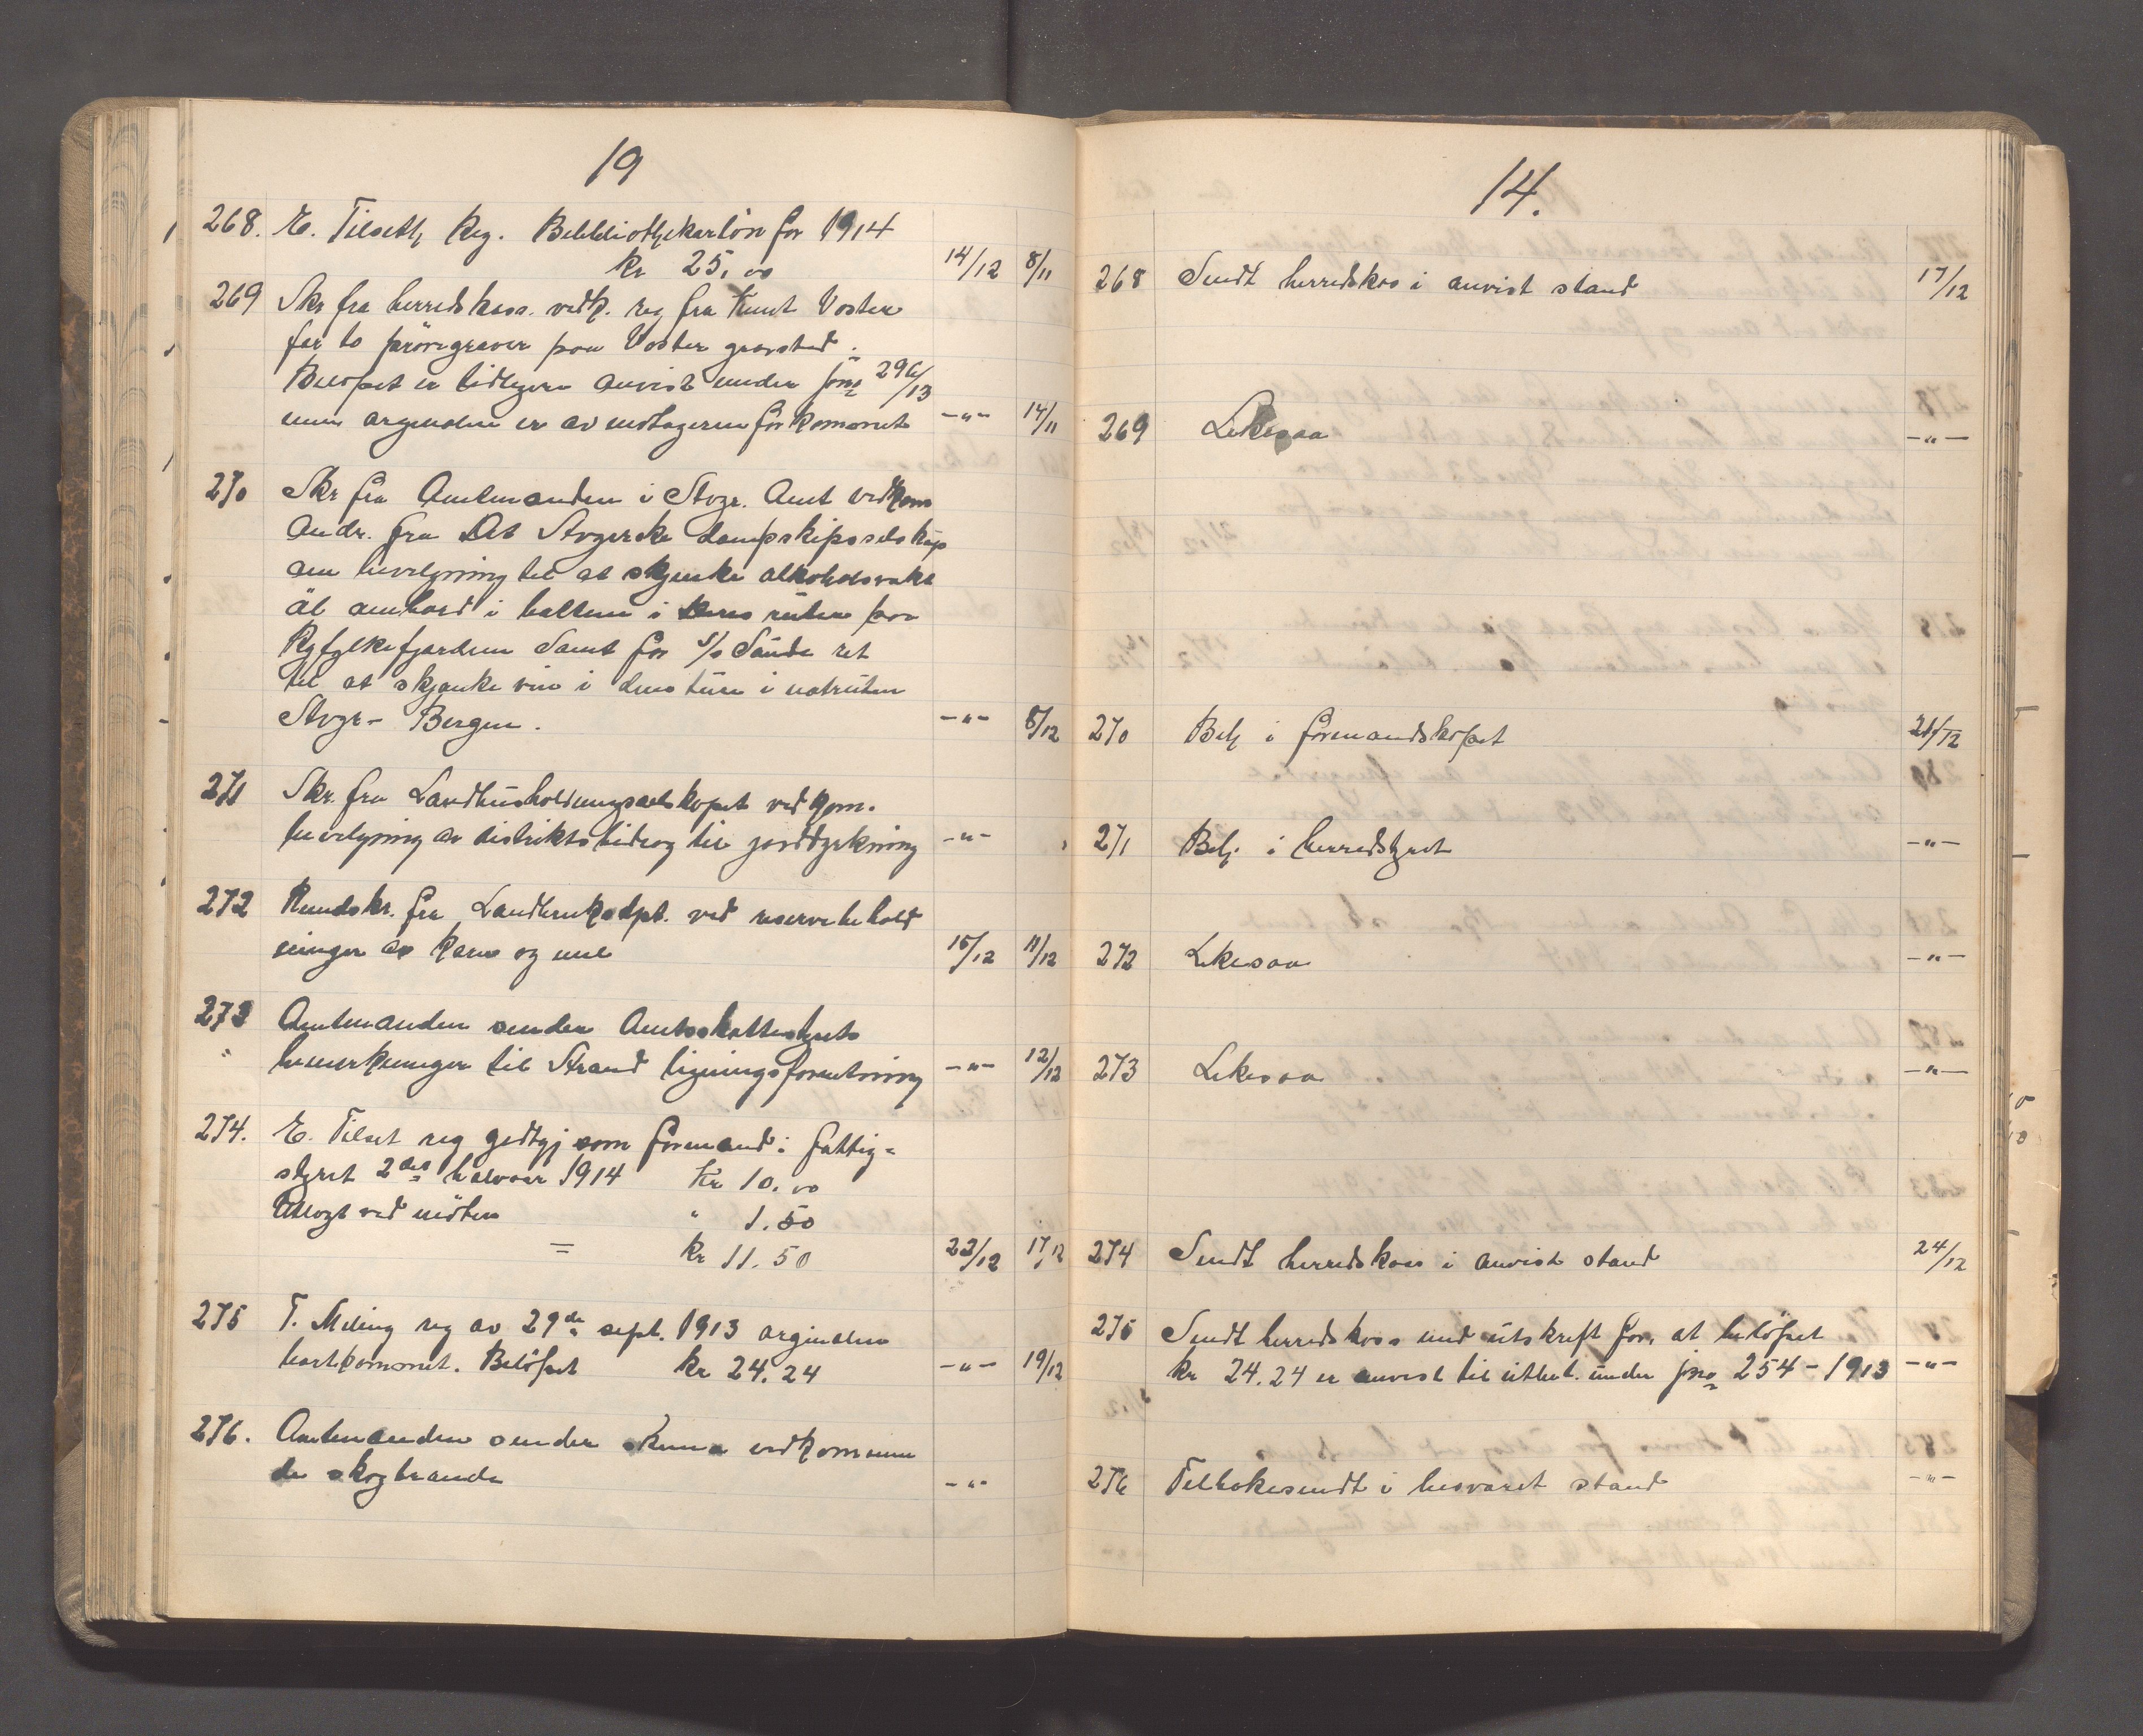 19
268. E. Tilseth Reg. Bibbliothekarløn for 1914
kr 25,00 14/12 8/11
269 Skr fra herredskass. vedk. reg fra Knut Voster
for to prøvegraver paa Voster gravsted.
Beløpet er tidligere anvist under jno 296/13
men orginalen er av motageren forkommet -"- 14/11
270 Skr fra Amtmanden i Stvgr. Amt vedkom
Andr. fra Det Stvgerske dampskipsselskap
om bevilgning til at skjenke alkoholsvakt
øl ombord i baltene i deres ruter paa
Ryfylkefjorden samt for s/s Sande ret
til at skjænke vin i dens ture i natruten
Stvgr - Bergen. -"- 8/12
271 Skr. fra Landhusholdningsselskapet vedkom.
bevilgning av distriktsbidrag til jorddyrkning -"-
272 Rundskr. fra Landbruksdpt. ved reservebehold
ninger av korn og mel 15/12 11/12
273 Amtmanden sender Amtsskattestyrets
" bemerkninger til Strand ligningsforretning -"- 12/12
274. E. Tilset reg godtgj som formand i fattig=
styret 2det halvaar 1914 Kr 10.00
Utlagt ved møten " 1.50
= kr 11.50 23/12 17/12
275 T. Meling reg av 29de sept. 1913 orginalen
bortkommet. Beløpet kr 24.24 -"- 19/12
276. Amtmanden sender skema vedkommen
de skogbrande -"-
14.
268 Sendt herredskas i anvist stand 17/12
269 Likesaa -"-
270 Beh i formandskapet 21/12
271 Beh. i herredstyret -"-
272 Likesaa -"-
273 Likesaa -"-
274 Sendt herredskass i anvist stand 24/12
275 Sendt herredskass med utskrift for, at beløpet
kr 24.24 er anvist til utbet. under jno 254 - 1913 -"-
276 Tilbakesendt i besvaret stand -"-